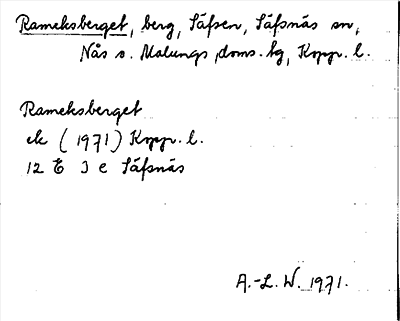 Rameksberget, berg, Säfsen, Säfsnäs sn,
Nås o. Malungs doms. hg, Kopp. l.
Rameksberget
ek (1971) Kopp. l.
12 E 3 e Säfsnäs
A.-L. W. 1971.